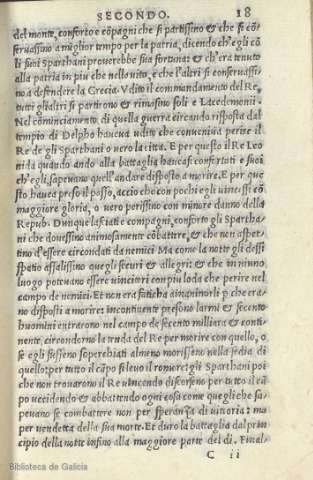 SECONDO. 18
del monte, conforto e cōpagni che si partissino & che si cō
seruassino a miglior tempo per la patria, dicendo ch'egli cō
li suoi Sparthani prouerebbe sua fortuna: & ch'era tenuto
alla patria in piu che nella uita, e che l'altri si conseruassi-
no a defendere la Grecia. Vdito il commandamento del Re,
tutti gli altri si partirono & rimasino soli e Lacedemonii.
Nel cōminciamento di quella guerra circando risposta dal
tempio di Delpho haueua udito che conueniua perire il
Re de gli Sparthani o uero la citta. E per questo il Re Leo
nida quādo ando alla battaglia haueua si confortati e suoi
ch'egli sapeuano quell'andare disposto a morire. E per que
sto haueua preso il passo, accio che con pochi egli uincessi cō
maggiore gloria, o uero perissino con minore danno della
Repub. Dunque lasciati e compagni, conforto gli Spartha-
ni che douessino animosamente cōbattere, & che non aspet-
tino d'essere circondati da nemici. Ma come la notte gli dessi
spatio assalissino que gli securi & allegri: & che in niuno
luogo potuano essere uincitori con piu loda che perire nel
campo de nemici. Et non era fatica a inanimorli p che era-
no disposti a morire: incontinente presono larmi & secento
huomini entrarono nel campo de secento miliara & conti-
nente, circondorno la tenda del Re per morire con quello, o
se egli fussino soperchiati almeno morissino nella sedia di
quello: per tutto il cāpo si leuo il romore: gli Sparthani poi
che non trouarono il Re uincendo discorseno per tutto il cā
po uccidendo & abbattendo ogni cosa come que gli che sa-
peuano se combattere non per speranza di uittoria: ma
per uendetta della sua morte. Et duro la battaglia dal prin
cipio della notte infino alla maggiore parte del di. Final-
C ii
Biblioteca de Galicia